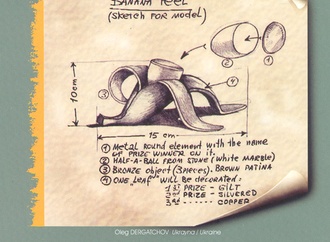 BANANA PEEL
(sketch FOR model)
①
②
10cm
③
④
15 cm
① Metal round element with the name
OF PRIZE WINNER ON it.
② HALF-A-BALL FROM STONE (White MARBLE)
③ BRONZE object (3pieces). BROWN PATINA
④ ONE „LEAF" WILL BE DECORATED:
1st PRIZE - GILT
2nd PRIZE - SILVERED
3rd ...... COPPER
Oleg DERGATCHOV Ukrayna / Ukraine